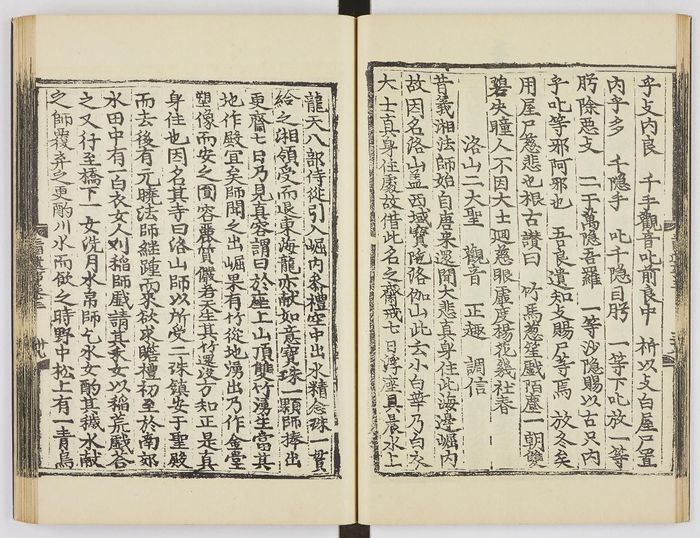 乎攴內良　千手觀音叱前良中　祈以攴白屋尸置
內乎多　千隱手　叱千隱目肹　一等下叱放一等
肹除惡攴　二于萬隱吾羅　一等沙隱賜以古只內
乎叱等邪阿邪也　吾良遺知攴賜尸等焉　放冬矣
用屋尸慈悲也根古　讚曰　竹馬葱笙戲陌塵一朝雙
碧失瞳人不因大士廻慈眼虛度楊花幾社春
洛山二大聖　觀音　正趣　調信
昔義湘法師始自唐來還聞大悲真身住此海邊崛內
故因名洛山盖西域寶陁洛伽山此云小白華乃白衣
大士真身住處故借此名之齋戒七日浮座具晨水上
龍天八部侍從引入崛內叅禮空中出水精念珠一貫
給之湘領受而退東海龍亦献如意寶珠一顆師捧出
更齋七日乃見真容謂曰於座上山頂雙竹湧生當其
地作殿宜矣師聞之出崛果有竹從地湧出乃作金堂
塑像而安之圎容麗質儼若天生其竹還沒方知正是真
身住也因名其寺曰洛山師以所受二珠鎮安于聖殿
而去後有元曉法師継踵而來欲求瞻禮初至於南郊
水田中有一白衣女人刈稻師戲請其禾女以稻荒戲荅
之又行至橋下一女洗月水帛師乞水女酌其穢水献
之師覆弃之更酌川水而飲之時野中松上有一青鳥